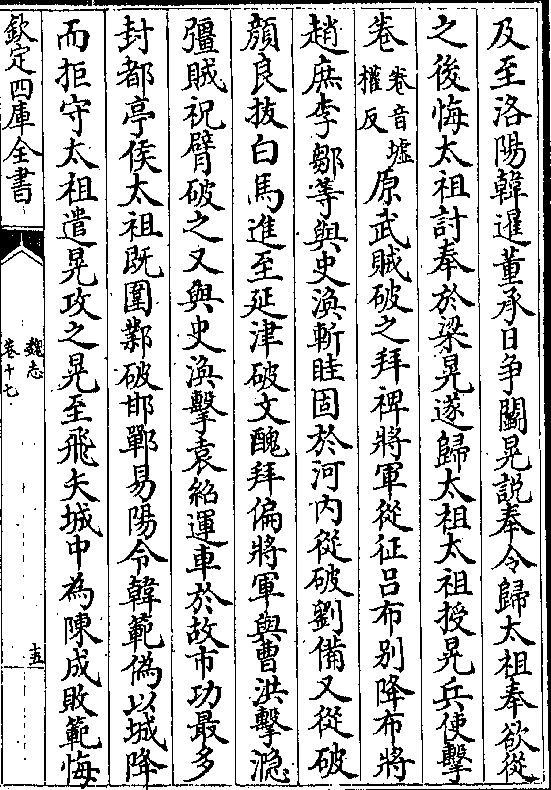 及至洛陽韓暹董承日爭鬭晃說奉令歸太祖奉欲從
之後悔太祖討奉於梁晃遂歸太祖太祖授晃兵使擊
卷卷音墟權反原武賊破之拜裨將軍從征呂布别降布將
趙庶李鄒等與史渙斬眭固於河内從破劉備又從破
顔良拔白馬進至延津破文醜拜偏將軍與曹洪擊㶏
彊賊祝臂破之又與史渙擊袁紹運車於故市功最多
封都亭侯太祖既圍鄴破邯鄲易陽令韓範偽以城降
而拒守太祖遣晃攻之晃至飛矢城中為陳成敗範悔
欽定四庫全書
魏志
卷十七
十五